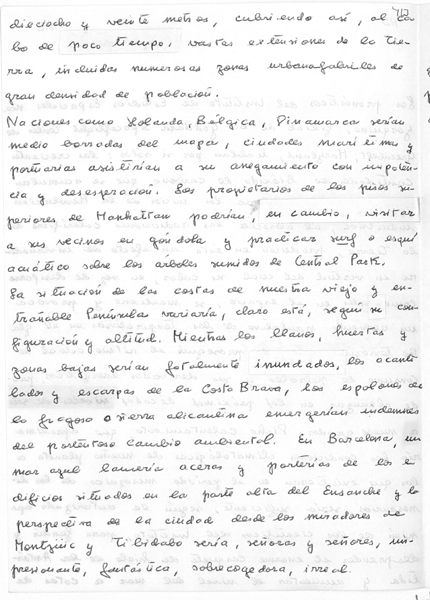 717
dieciocho y veinte metros, cubriendo así, al ca-
bo de poco tiempo, vastas extensiones de la tie-
rra, incluidas numerosas zonas urbanofabriles de
gran densidad de población.
Naciones como Holanda, Bélgica, Dinamarca serían
medio borradas del mapa, ciudades marítimas y
portuarias asistirían a su anegamiento con impoten-
cia y desesperación. Los propietarios de los pisos su-
periores de Manhattan podrían, en cambio, visitar
a sus vecinos en góndola y practicar surf o esquí
acuático sobre los árboles sumidos de Central Park.
La situación de las costas de nuestra vieja y en-
trañable Península variaría, claro está, según su con-
figuración y altitud. Mientras los llanos, huertas y
zonas bajas serían totalmente inundados, los acanti-
lados y escarpas de la Costa Brava, los espolones de
la fragosa sierra alicantina emergerían indemnes
del portentoso cambio ambiental. En Barcelona, un
mar azul lamería aceras y porterías de los e-
dificios situados en la parte alta del Ensanche y la
perspectiva de la ciudad desde los miradores de
Montjuic y Tibidabo sería, señoras y señores, im-
presionante, fantástica, sobrecogedora, irreal.